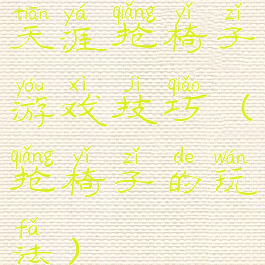 tiān yá qiǎng yǐ zǐ
天涯抢椅子
yóu xì jì qiǎo
游戏技巧（
qiǎng yǐ zǐ de wán
抢椅子的玩
fǎ
法）